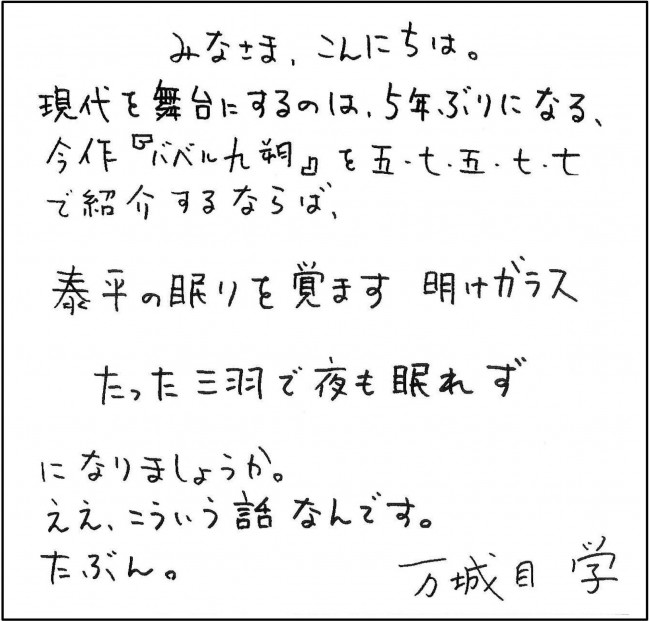 みなさま、こんにちは。
現代を舞台にするのは、5年ぶりになる、
今作『バベル九朔』を五・七・五・七・七
で紹介するならば、
泰平の眠りを覚ます 明けガラス
たった三羽で夜も眠れず
になりましょうか。
ええ、こういう話なんです。
たぶん。
万城目 学